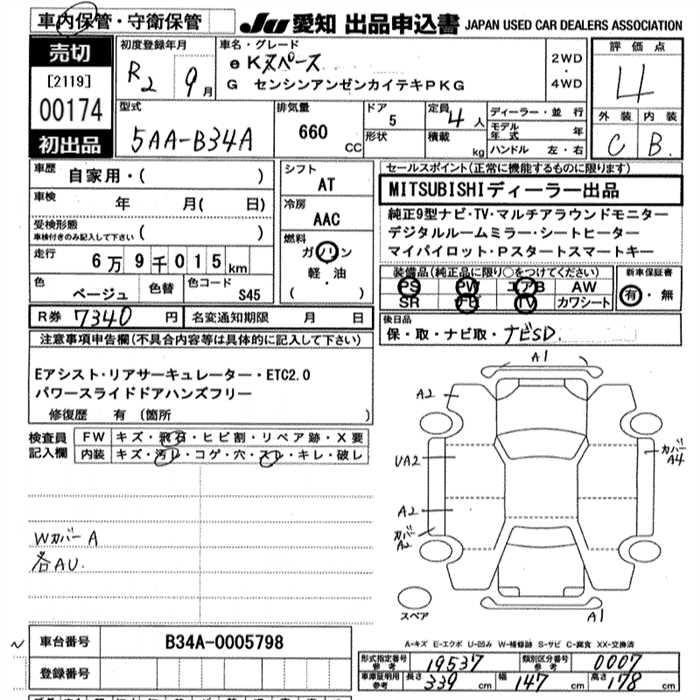 車内保管・守衛保管
JU 愛知 出品申込書 JAPAN USED CAR DEALERS ASSOCIATION
売切
[2119]
00174
初出品
初度登録年月
R2 9月
車名・グレード
eKスペース
G センシンアンゼンカイテキPKG
2WD
・
4WD
評価点
4
外装 内装
C B.
型式
5AA-B34A
排気量
660 CC
ドア
5
形状
定員
4人
積載
kg
ディーラー・並行
モデル年式 年
ハンドル 左・右
車歴
自家用・( )
車検
年 月( 日)
受検形態
車検付きのみ記入して下さい ( )
走行
6万9千015km
色
ベージュ
色替
色コード
S45
シフト
AT
冷房
AAC
燃料
ガソリン
軽・油
( )
セールスポイント(正常に機能するものに限ります)
MITSUBISHIディーラー出品
純正9型ナビ・TV・マルチアラウンドモニター
デジタルルームミラー・シートヒーター
マイパイロット・Pスタートスマートキー
装備品(純正品に限り○をつけてください)
PS PW エアB AW
SR TV カワシート
新車保証書
有・無
R券 7340円 名変通知期限 月 日
後日品
保・取・ナビ取・ナビSD.
注意事項申告欄(不具合内容等は具体的に記入して下さい)
Eアシスト・リアサーキュレーター・ETC2.0
パワースライドドアハンズフリー
修復歴 有 (箇所 )
検査員
記入欄
FW キズ・飛石・ヒビ割・リペア跡・X要
内装 キズ・汚レ・コゲ・穴・スレ・キレ・破レ
Wカバー A
各AU.
A1
A2
UA2
A2
カバー
A2
カバー
A4
スペア
A1
A-キズ E-エクボ U-凹み W-補修跡 S-サビ C-腐食 XX-交換済
車台番号 B34A-0005798
登録番号
形式指定番号
参考
19537
類別区分番号
参考
0007
車庫証明用
参考
長さ 339 cm 幅 147 cm 高さ 178 cm